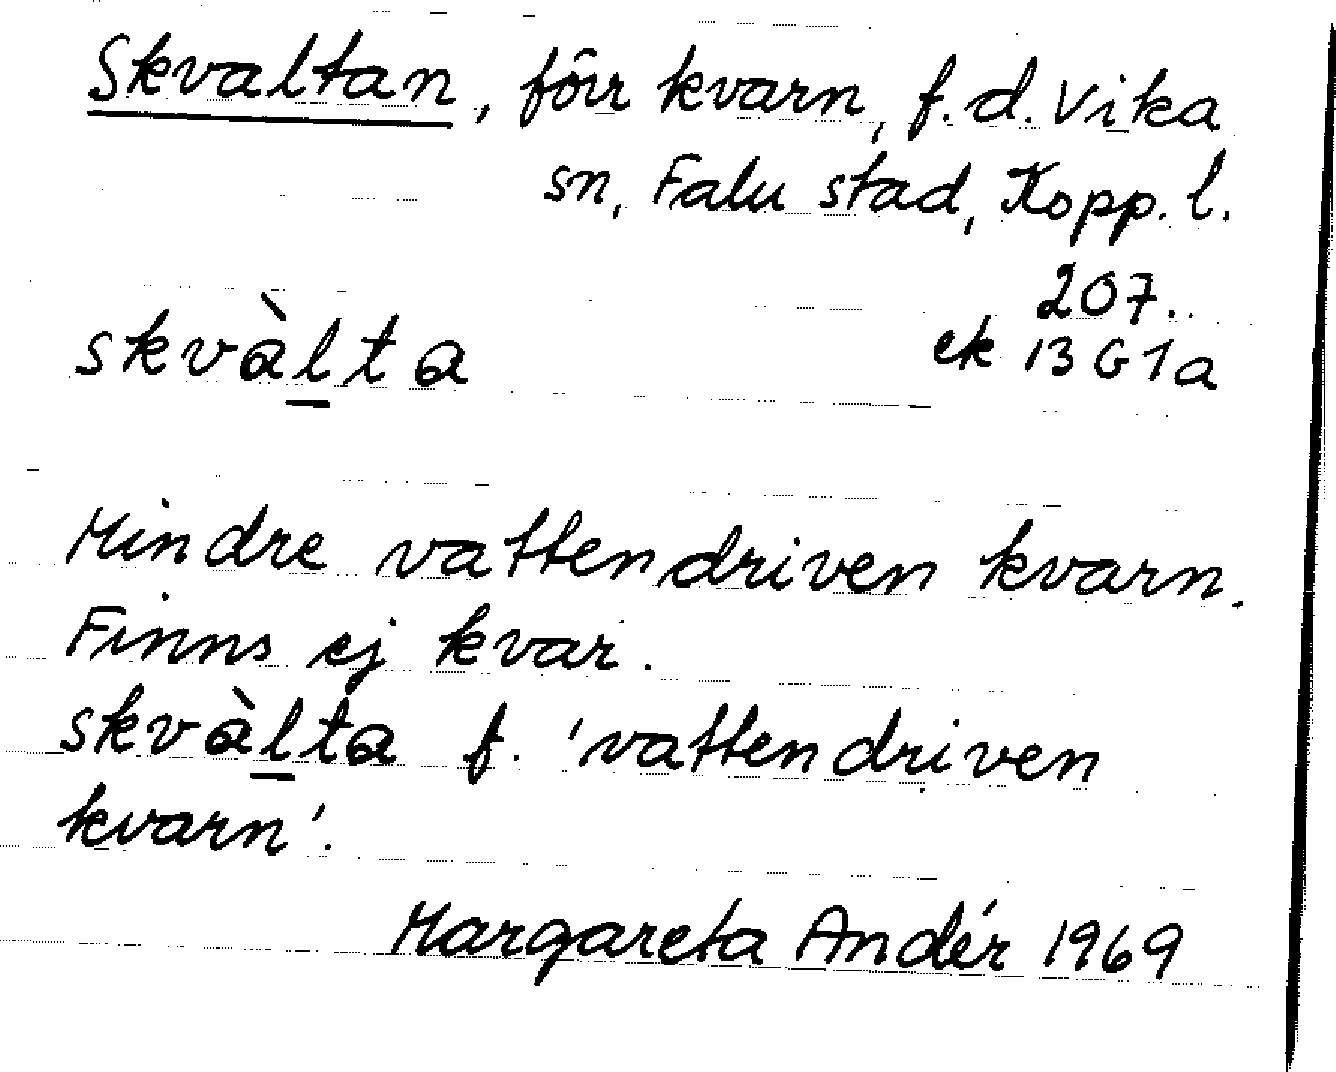 Skvaltan, förr kvarn, f.d. Vika
sn, Falu stad, Kopp. l.
207.
skvàl̲ta
ek 13 G 1a
Mindre vattendriven kvarn.
Finns ej kvar.
skvàl̲ta f. 'vattendriven
kvarn'.
Margareta Andér 1969